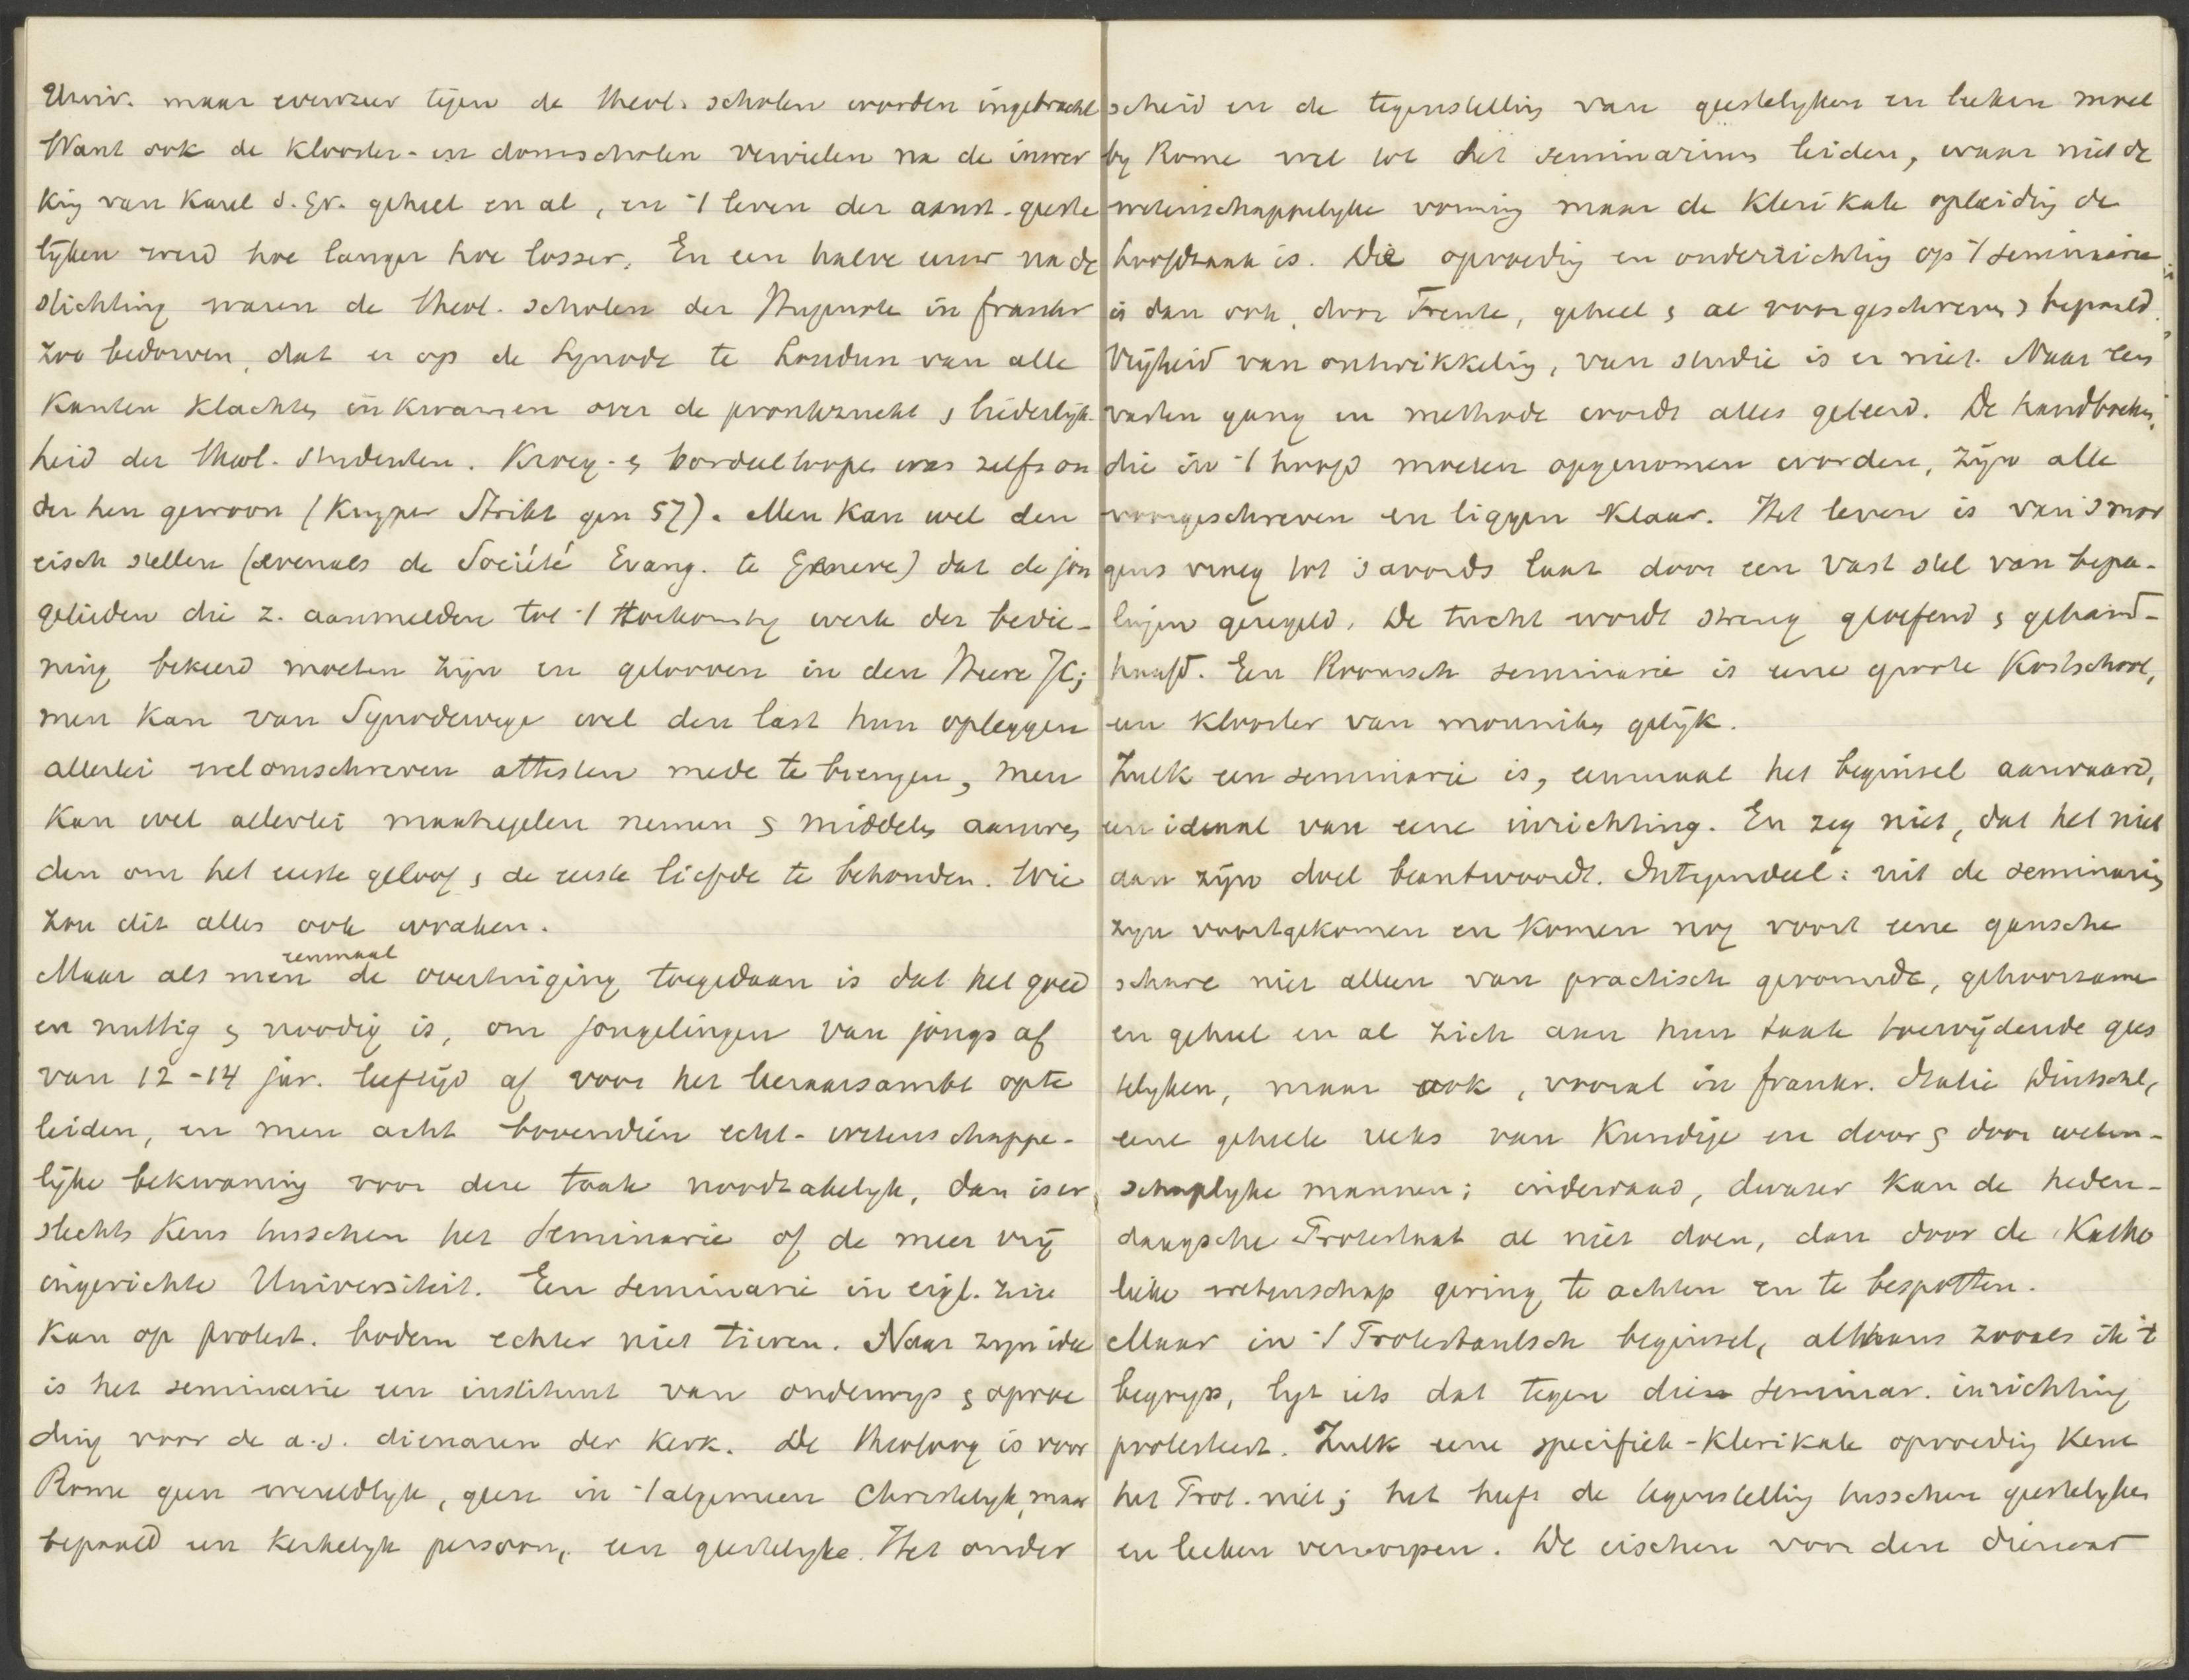 Univ. maar evenzeer tegen de theol. scholen worden ingebracht
Want ook de klooster- en domscholen vervielen na de inwer
king van Karel d. Gr. geheel en al, en 't leven der aanst. geeste
lijken werd hoe langer hoe losser. En een halve eeuw na de
stichting waren de theol. scholen der Hugenote in frankr
zoo bedorven, dat er op de Synode te Loudun van alle
kanten klachten inkwamen over de pronkzucht & liederlijk-
heid der theol. studenten. Kroeg- & bordeelloopen was zelfs on
der hen gewoon (Kuyper Strikt gen 57). Men kan wel den
eisch stellen (evenals de Société Evang. te Genève) dat de jon
gelieden die z. aanmelden tot 't toekomstig werk der bedie-
ning bekeerd moeten zijn en gelooven in den Heere JC;
men kan van Synodewege wel den last hun opleggen
allerlei welomschreven attesten mede te brengen, men
kan wel allerlei maatregelen nemen & middelen aanwen
den om het eerste geloof & de eerste liefde te behouden. Wie
zou dit alles ook wraken.
Maar als men eenmaal de overtuiging toegedaan is dat het goed
en nuttig & noodig is, om jongelingen van jongs af
van 12-14 jar. leeftijd af voor het leeraarsambt opte
leiden, en men acht bovendien echt- wetenschappe-
lijke bekwaming voor deze taak noodzakelijk, dan is er
slechts keus tusschen het Seminarie of de meer vrij
ingerichte Universiteit. Een seminarie in eigl. zin
kan op protest. bodem echter niet tieren. Naar zijn idee
is het seminarie een instituut van onderwijs & opvoe
ding voor de a.s. dienaren der kerk. De theoloog is voor
Rome geen wereldlijk, geen in 't algemeen Christelijk, maar
bepaald een kerkelijk persoon, een geestelijke. Het onder
scheid en de tegenstelling van geestelijken en leeken moet
bij Rome wel tot het seminarium leiden, waar niet de
wetenschappelijke vorming maar de klerikale opleiding de
hoofdzaak is. Die opvoeding en onderrichting op 't seminarie
is dan ook, door Trente, geheel & al voorgeschreven & bepaald.
Vrijheid van ontwikkeling, van studie is er niet. Naar een
vasten gang en methode wordt alles geleerd. De handboeken,
die in 't hoofd moeten opgenomen worden, zijn alle
voorgeschreven en liggen klaar. Het leven is van 's mor
gens vroeg tot 's avonds laat door een vast stel van bepa-
lingen geregeld. De tucht wordt streng geoefend & gehand-
haafd. Een Roomsch seminarie is eene groote kostschool,
een klooster van monniken gelijk.
Zulk een seminarie is, eenmaal het beginsel aanvaard,
een ideaal van eene inrichting. En zeg niet, dat het niet
aan zijn doel beantwoordt. Integendeel: uit de seminarien
zijn voortgekomen en komen nog voort eene gansche
schare niet alleen van practisch gevormde, gehoorzame
en geheel en al zich aan hun taak toewijdende gees
telijken, maar ook, vooral in frankr. Italie Duitschl,
eene geheele reeks van kundige en door & door weten-
schaplijke mannen; inderdaad, dwazer kan de heden-
daagsche Protestant al niet doen, dan door de Katho
lieke wetenschap gering te achten en te bespotten.
Maar in 't Protestantsch beginsel, althans zooals ik 't
begrijp, ligt iets dat tegen die seminar. inrichting
protesteert. Zulk eene specifiek-klerikale opvoeding kent
het Prot. niet; het heeft de tegenstelling tusschen geestelijken
en leeken verworpen. De eischen voor den dienaar